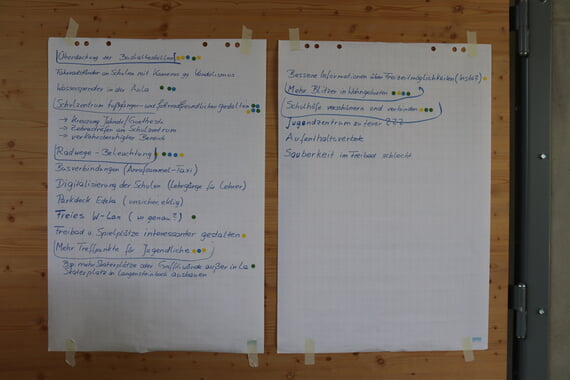 Überdachung der Bushaltestellen
Fahrradständer an Schulen mit Kameras gg Vandalismus
Wasserspender in der Aula
Schulzentrum fußgänger- und fahrradfreundlicher gestalten
→ Kreuzung
→ Zebrastreifen am Schulzentrum
→ verkehrsberuhigter Bereich
Radwege-Beleuchtung
Busverbindungen (Anrufsammel-Taxi)
Digitalisierung der Schulen (Lehrgänge für Lehrer)
Parkdeck Edeka (unsicher, eklig)
Freies W-Lan (wo genau?)
Freibad u. Spielplätze interessanter gestalten
Mehr Treffpunkte für Jugendliche
Bsp: mehr Skaterplätze oder Graffitiwände außer in La
Skaterplatz in Langensteinbach ausbauen
Bessere Informationen über Freizeitmöglichkeiten (Insta?)
Mehr Blitzer in Wohngebieten
Schulhöfe verschönern und verbinden
Jugendzentrum zu teuer ???
Aufenthaltsverbote
Sauberkeit im Freibad schlecht